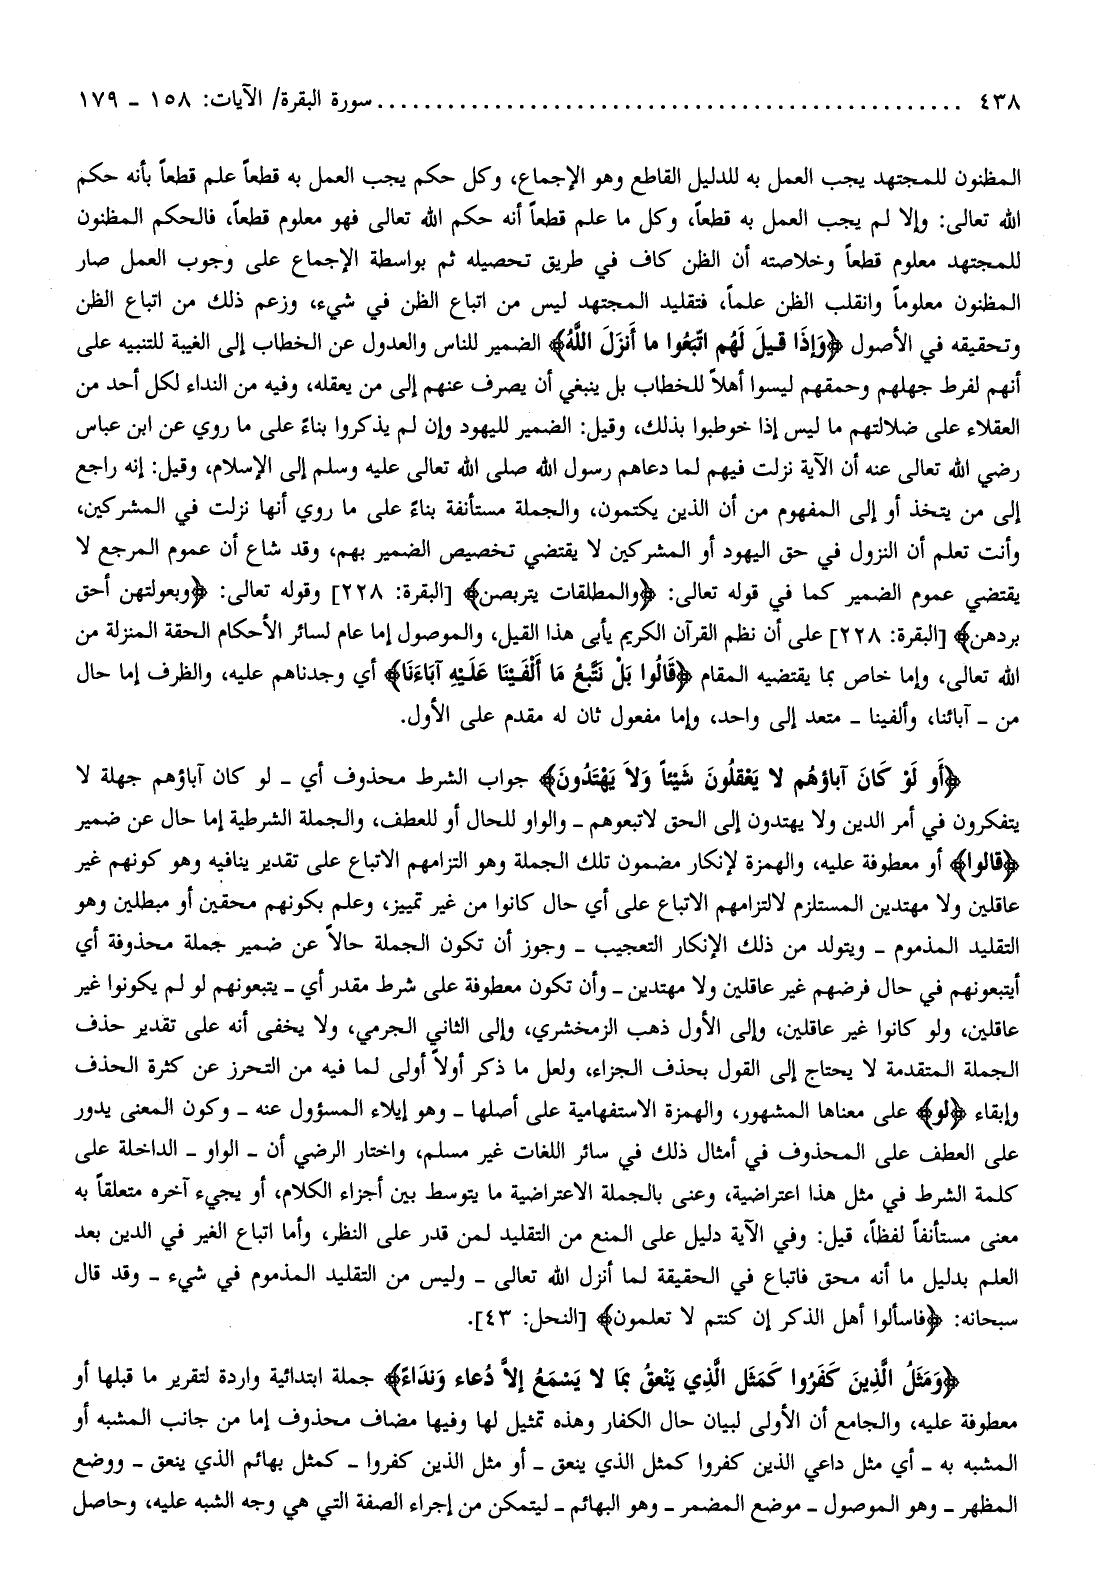 ٤٣٨ ................................................ سورة البقرة/ الآيات: ١٥٨ ـ ١٧٩
المظنون للمجتهد يجب العمل به للدليل القاطع وهو الإجماع، وكل حكم يجب العمل به قطعاً علم قطعاً بأنه حكم
الله تعالى: وإلا لم يجب العمل به قطعاً، وكل ما علم قطعاً أنه حكم الله تعالى فهو معلوم قطعاً، فالحكم المظنون
للمجتهد معلوم قطعاً وخلاصته أن الظن كاف في طريق تحصيله ثم بواسطة الإجماع على وجوب العمل صار
المظنون معلوماً وانقلب الظن علماً، فتقليد المجتهد ليس من اتباع الظن في شيء، وزعم ذلك من اتباع الظن
وتحقيقه في الأصول ﴿وَإِذَا قيلَ لَهُم اتّبَعُوا ما أَنزَلَ اللَّهُ﴾ الضمير للناس والعدول عن الخطاب إلى الغيبة للتنبيه على
أنهم لفرط جهلهم وحمقهم ليسوا أهلاً للخطاب بل ينبغي أن يصرف عنهم إلى من يعقله، وفيه من النداء لكل أحد من
العقلاء على ضلالتهم ما ليس إذا خوطبوا بذلك، وقيل: الضمير لليهود وإن لم يذكروا بناءً على ما روي عن ابن عباس
رضي الله تعالى عنه أن الآية نزلت فيهم لما دعاهم رسول الله صلى الله تعالى عليه وسلم إلى الإسلام، وقيل: إنه راجع
إلى من يتخذ أو إلى المفهوم من أن الذين يكتمون، والجملة مستأنفة بناءً على ما روي أنها نزلت في المشركين،
وأنت تعلم أن النزول في حق اليهود أو المشركين لا يقتضي تخصيص الضمير بهم، وقد شاع أن عموم المرجع لا
يقتضي عموم الضمير كما في قوله تعالى: ﴿والمطلقات يتربصن﴾ [البقرة: ٢٢٨] وقوله تعالى: ﴿وبعولتهن أحق
بردهن﴾ [البقرة: ٢٢٨] على أن نظم القرآن الكريم يأبى هذا القيل، والموصول إما عام لسائر الأحكام الحقة المنزلة من
الله تعالى، وإما خاص بما يقتضيه المقام ﴿قَالُوا بَلْ نَتَّبعُ مَا أَلْفَيْنَا عَلَيْهِ آبَاءَنَا﴾ أي وجدناهم عليه، والظرف إما حال
من ـ آبائنا، وألفينا ـ متعد إلى واحد، وإما مفعول ثان له مقدم على الأول.
﴿أَو لَوْ كَانَ آباؤهُم لا يَعْقلُونَ شَيْئاً وَلاَ يَهْتَدُونَ﴾ جواب الشرط محذوف أي ـ لو كان آباؤهم جهلة لا
يتفكرون في أمر الدين ولا يهتدون إلى الحق لاتبعوهم ـ والواو للحال أو للعطف، والجملة الشرطية إما حال عن ضمير
﴿قالوا﴾ أو معطوفة عليه، والهمزة لإنكار مضمون تلك الجملة وهو التزامهم الاتباع على تقدير ينافيه وهو كونهم غير
عاقلين ولا مهتدين المستلزم لالتزامهم الاتباع على أي حال كانوا من غير تمييز، وعلم بكونهم محقين أو مبطلين وهو
التقليد المذموم ـ ويتولد من ذلك الإنكار التعجيب ـ وجوز أن تكون الجملة حالاً عن ضمير جملة محذوفة أي
أيتبعونهم في حال فرضهم غير عاقلين ولا مهتدين ـ وأن تكون معطوفة على شرط مقدر أي ـ يتبعونهم لو لم يكونوا غير
عاقلين، ولو كانوا غير عاقلين، وإلى الأول ذهب الزمخشري، وإلى الثاني الجرمي، ولا يخفى أنه على تقدير حذف
الجملة المتقدمة لا يحتاج إلى القول بحذف الجزاء، ولعل ما ذكر أولاً أولى لما فيه من التحرز عن كثرة الحذف
وإبقاء ﴿لو﴾ على معناها المشهور، والهمزة الاستفهامية على أصلها ـ وهو إيلاء المسؤول عنه ـ وكون المعنى يدور
على العطف على المحذوف في أمثال ذلك في سائر اللغات غير مسلم، واختار الرضي أن ـ الواو ـ الداخلة على
كلمة الشرط في مثل هذا اعتراضية، وعنى بالجملة الاعتراضية ما يتوسط بين أجزاء الكلام، أو يجيء آخره متعلقاً به
معنى مستأنفاً لفظاً، قيل: وفي الآية دليل على المنع من التقليد لمن قدر على النظر، وأما اتباع الغير في الدين بعد
العلم بدليل ما أنه محق فاتباع في الحقيقة لما أنزل الله تعالى ـ وليس من التقليد المذموم في شيء ـ وقد قال
سبحانه: ﴿فاسألوا أهل الذكر إن كنتم لا تعلمون﴾ [النحل: ٤٣].
﴿وَمَثَلُ الَّذِينَ كَفَرُوا كَمَثَل الَّذِي يَنْعقُ بمَا لا يَسْمَعُ إلاَّ دُعاء وَندَاءً﴾ جملة ابتدائية واردة لتقرير ما قبلها أو
معطوفة عليه، والجامع أن الأولى لبيان حال الكفار وهذه تمثيل لها وفيها مضاف محذوف إما من جانب المشبه أو
المشبه به ـ أي مثل داعي الذين كفروا كمثل الذي ينعق ـ أو مثل الذين كفروا ـ كمثل بهائم الذي ينعق ـ ووضع
المظهر ـ وهو الموصول ـ موضع المضمر ـ وهو البهائم ـ ليتمكن من إجراء الصفة التي هي وجه الشبه عليه، وحاصل